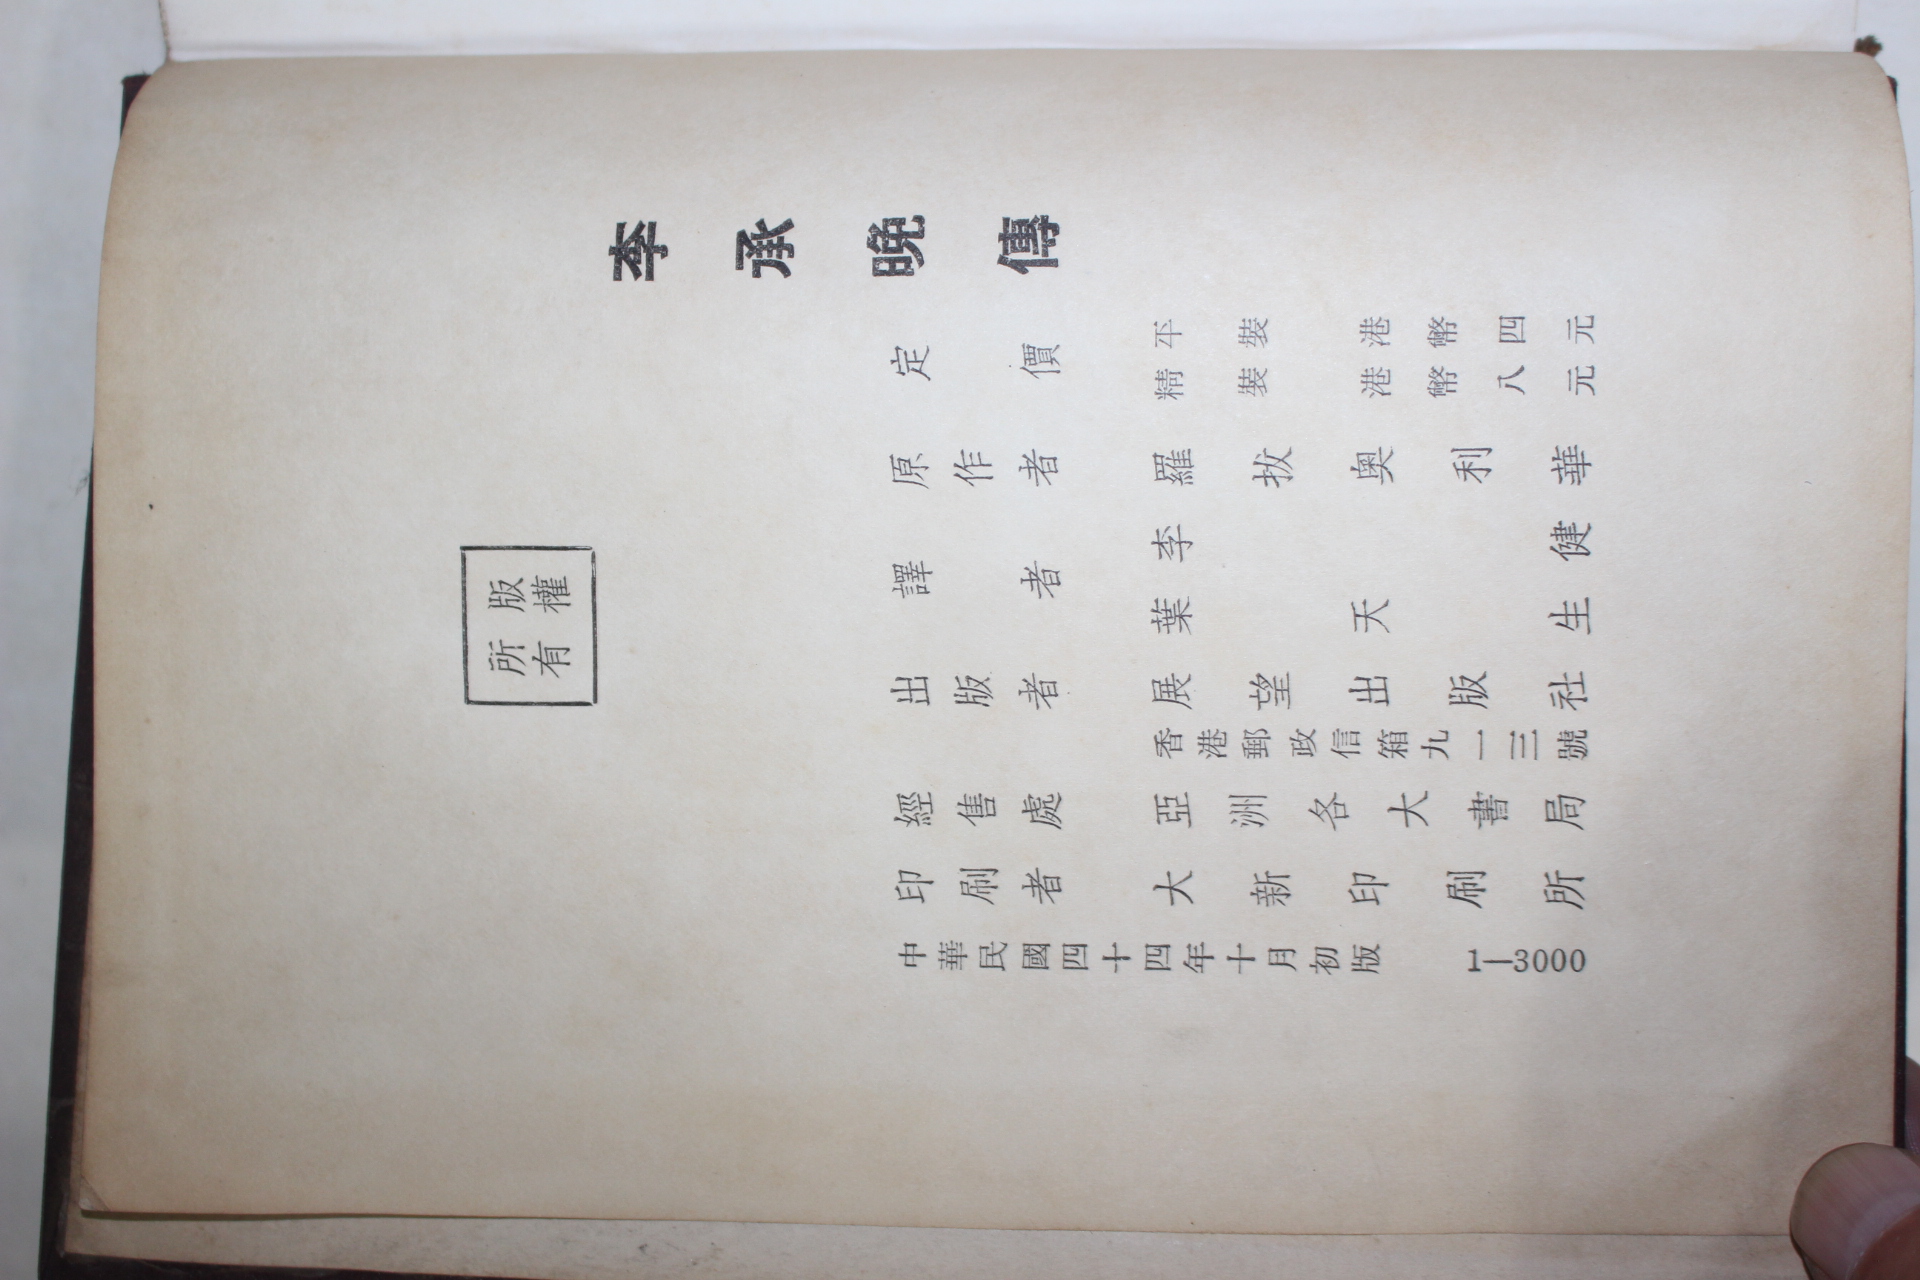 李承晚傳
版權
所有
定價 平裝港幣四元
精裝港幣八元
原作者 羅拔奧利華
譯者 李健
葉天生
出版者 展望出版社
香港郵政信箱九一三號
經售處 亞洲各大書局
印刷者 大新印刷所
中華民國四十四年十月初版 1—3000